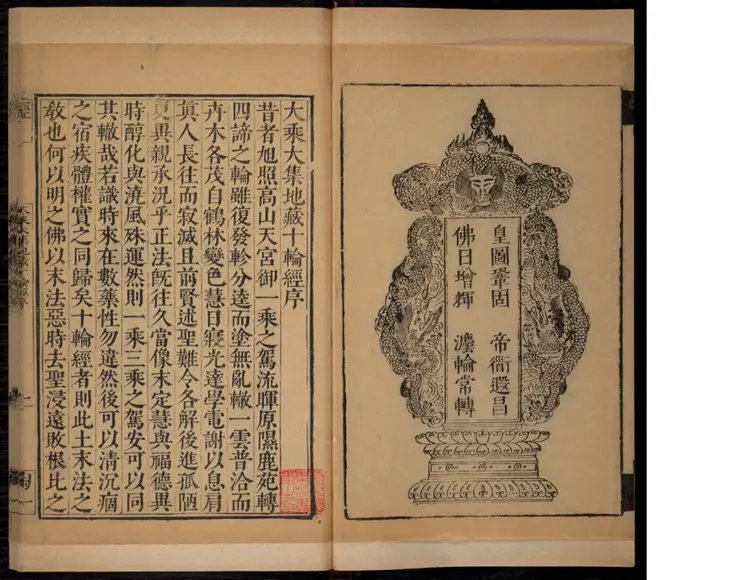 皇圖鞏固 帝衜遐昌
佛日增輝 灋輪常轉
大乘大集地藏十輪經序
昔者旭照高山天宮御一乘之駕流暉原隰鹿苑轉
四諦之輪雖復發軫分逵而塗無亂轍一雲普洽而
卉木各茂自鶴林變色慧日寢光達學電謝以息肩
眞人長往而寂滅且前賢述聖難令各解後進孤陋
更異親承況乎正法旣往久當像末定慧與福德異
時醇化與澆風殊運然則一乘三乘之駕安可以同
其轍哉若識時來在數藥性勿違然後可以清沉痼
之宿疾體權實之同歸矣十輪經者則此土末法之
敎也何以明之佛以末法惡時去聖浸遠敗根比之